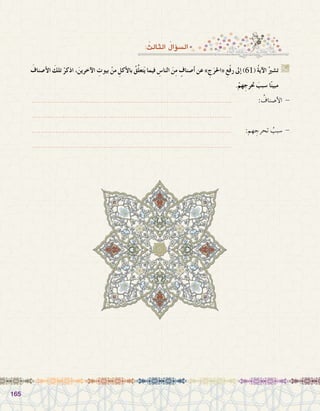 السؤال الثالث
تشيرُ الآيةُ (61) إلى رفعِ «الحَرَجِ» عن أصنافٍ مِنَ الناسِ فيما يَتعلَّقُ بالأكلِ مِنْ بيوتِ الآخرينَ، اذكرْ تلكَ الأصنافَ
مبينًا سببَ تحرجِهمْ.
- الأصنافُ:
- سببُ تحرجِهم:
165